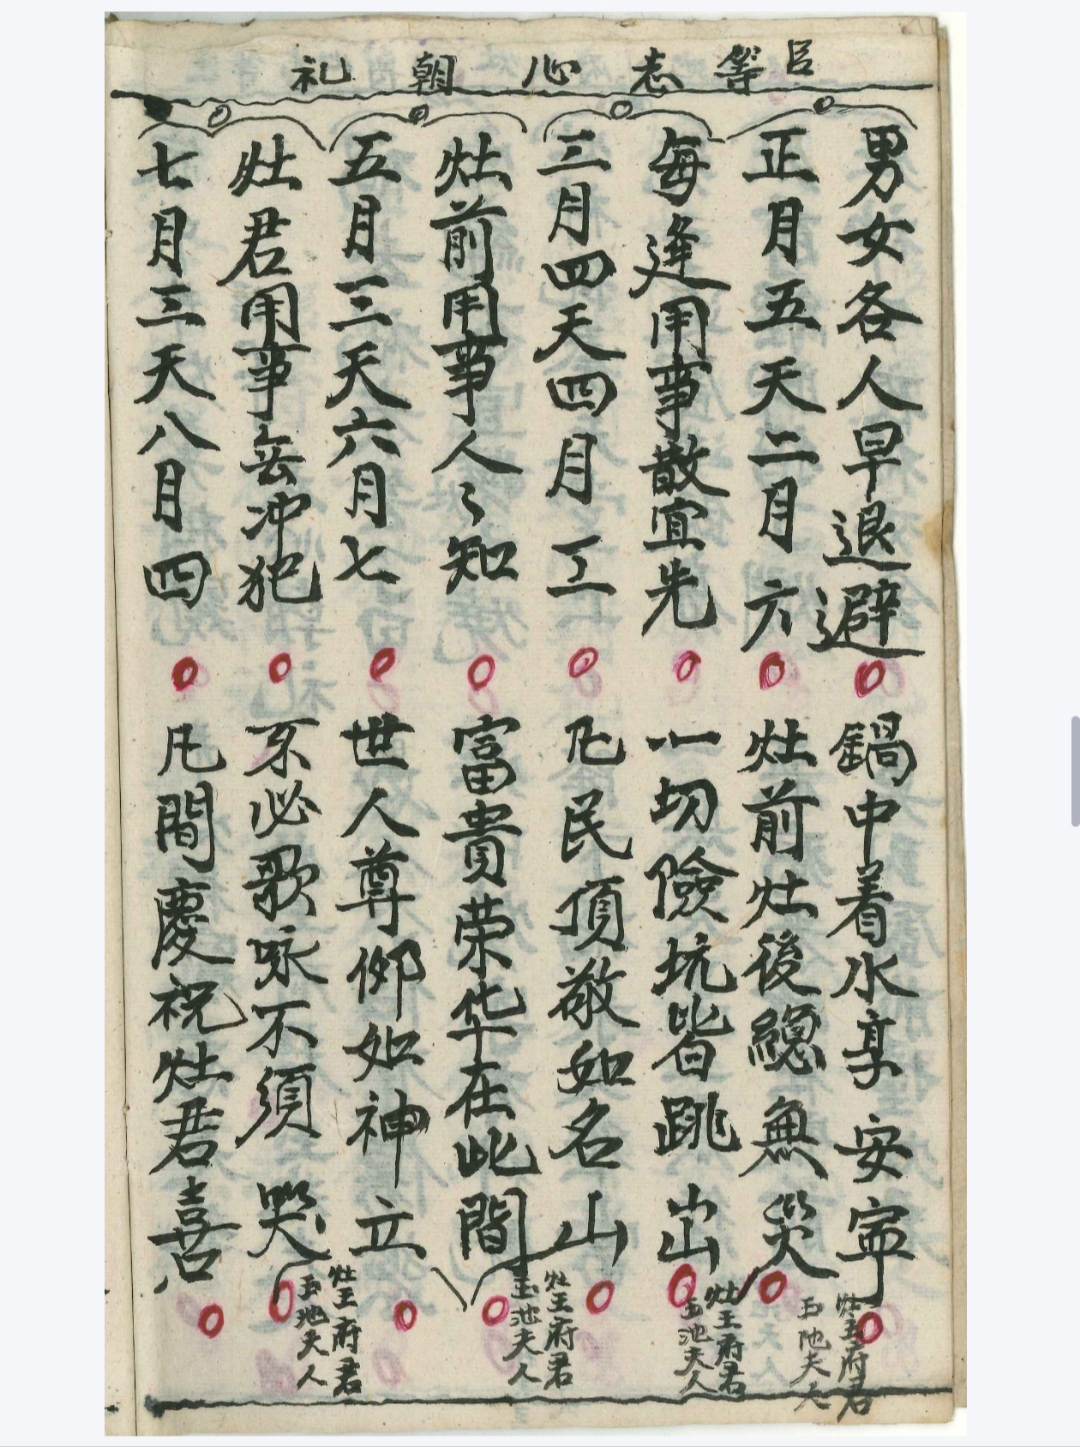 臣等志心朝礼
男女各人早退避
鍋中着水享安寕
正月五天二月六
灶前灶後緫無災
灶王府君
玉池夫人
每逢用事散宜先
一切險坑皆跳出
三月四天四月工
凡民頂敬如名山
灶王府君
玉池夫人
灶前用事人々知
富貴荣华在此間
五月三天六月七
世人尊仰如神立
灶王府君
玉池夫人
灶君用事毋冲犯
不必歌咏不須哭
七月三天八月四
凡間慶祝灶君喜
灶王府君
玉池夫人